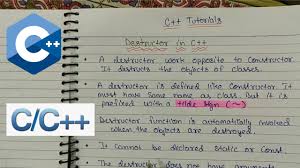 C++ Tutorials
Destructor in C++
• A destructor work opposite to constructor.
It destructs the objects of classes.
• A destructor is defined like constructor. It
must have same name as class. But it is
prefixed with a tilde sign (~)
Destructor function is automatically invoked
when the objects are destroyed.
• It cannot be declared static or const.
The destructor does not have arguments
C++
C/C++